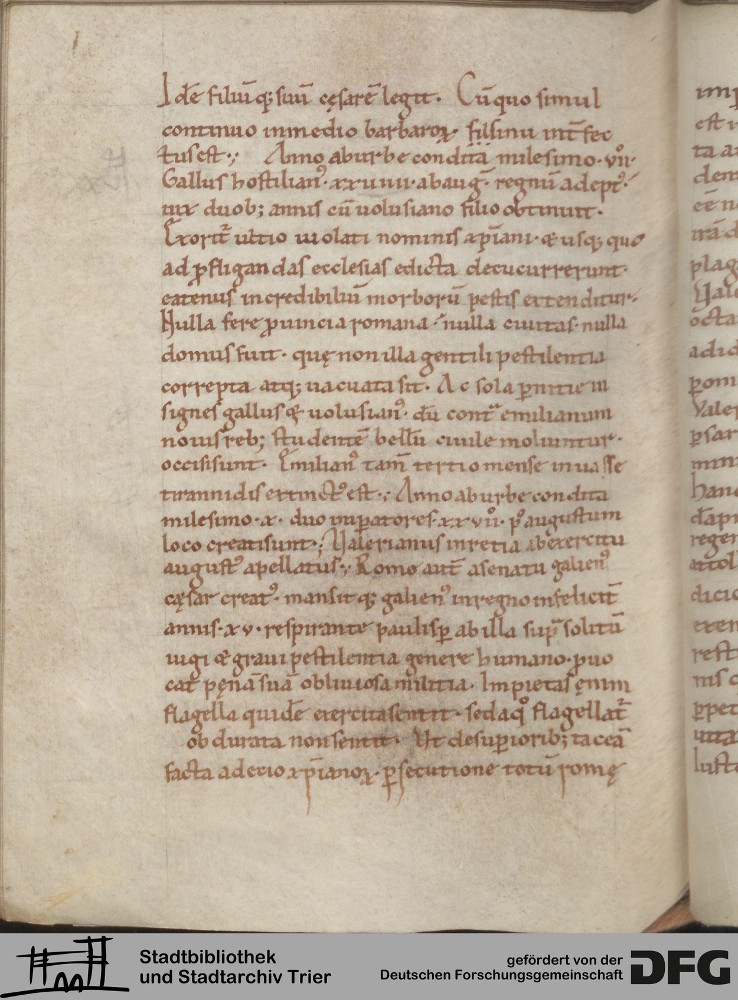 Idē filiūq; suū cęsarē legit. Cū quo simul
continuo inmedio barbaroꝝ. sił sinu intfec
tus est.; Anno aburbe condita milesimo. vii.
Gallus hostilianꝰ. xxuiiii. ab aug. regnū adeptꝰ.
uix duob; annis cū uolusiano filio obtinuit.
Exorit ultio uiolati nominis xp̄iani. & usq; quo
ad ꝓfligandas ecclesias edicta decucurrerunt.
eatenus incredibiliū morborū pestis extenditur.
Nulla fere ꝓuincia romana. nulla ciuitas. nulla
domus fuit. quę non illa gentili pestilentia
correpta atq; uacuata sit. Ac sola ꝑnitie in
signes gallus & uolusianꝰ. dū cont emilianum
nouis reb; studentē bellū ciuile moliuntur.
occisi sunt. Emilianꝰ tam̄ tertio mense inuasse
tirannidis extinctꝰ est.; Anno aburbe condita
milesimo. x. duo imꝑatores. xxvii. p augustum
loco creati sunt.; Valerianus in retia ab exercitu
august apellatus.; Romę aut̄ a senatu galienꝰ
cęsar creatꝰ. mansitq; galienꝰ in regno infelicit̄
annis. xv. respirante paulisꝑ ab illa sup̄ solitū
iugi & graui pestilentia genere humano. ꝓuo
cat pęnā suā obliuiosa militia. Impietas enim
flagella quidē excruciata sentit. sed a qͦ flagellat̄
obdurata non sentit. Vt de suꝑiorib; taceā
facta a decio xp̄ianoꝝ. ꝑsecutione totū romę
Stadtbibliothek
und Stadtarchiv Trier
gefördert von der
Deutschen Forschungsgemeinschaft
DFG